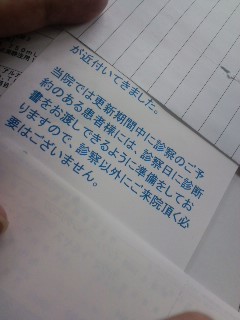 が近付いてきました。
当院では更新期間中に診察のご予
約のある患者様には、診察日に診断
書をお渡しできるように準備をしてお
りますので、診察以外にご来院頂く必
要はございません。